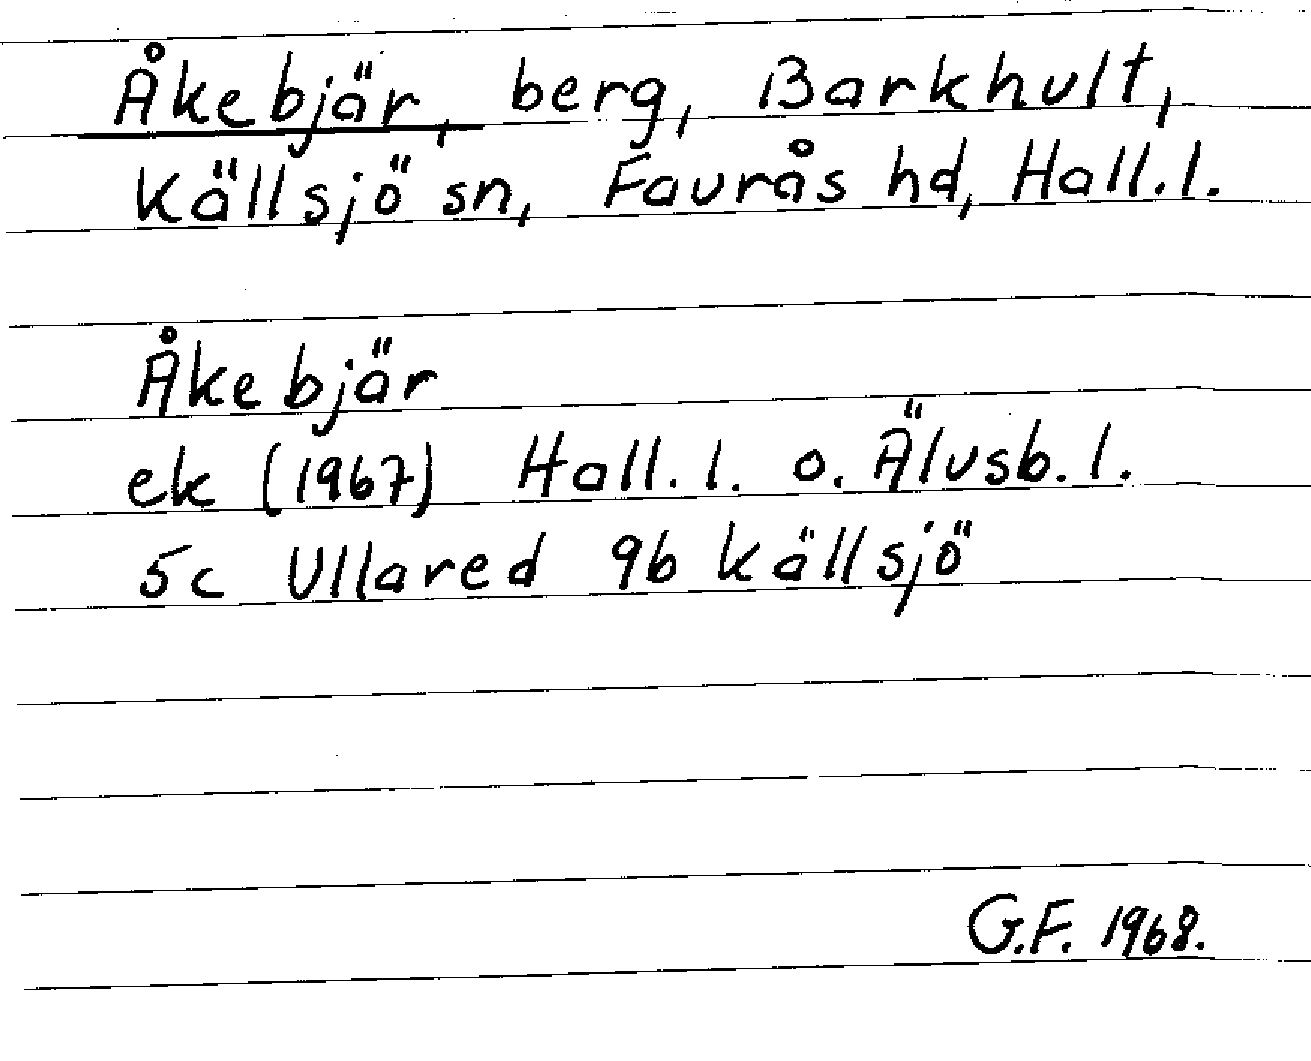 Åkebjär, berg, Barkhult,
Källsjö sn, Faurås hd, Hall.l.
Åkebjär
ek (1967) Hall.l. o. Älvsb.l.
5c Ullared 9b Källsjö
G.F. 1968.